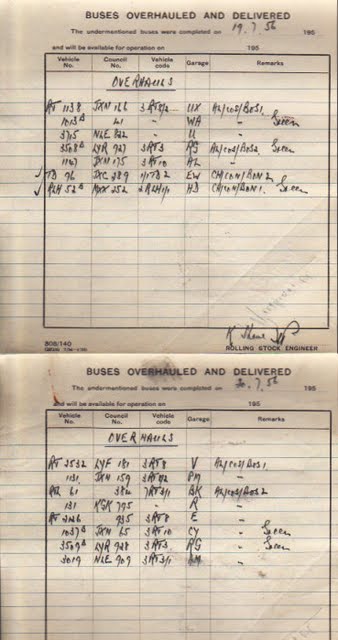 BUSES OVERHAULED AND DELIVERED
The undermentioned buses were completed on 19.7.56 195
and will be available for operation on 195
Vehicle No. Council No. Vehicle code Garage Remarks
OVERHAULS
RT 1138 JXN 166 3RT8/2 UX A2/COS/BOS1.
1013 41 - WA - Green
3715 NLE 822 - U -
3508 LYR 727 3RT3 RG A2/COS/BOS2. Green
1147 JXN 175 3RT10 AL -
TD 76 JXC 289 1/1TD2 EW CH/CON/BON2
RLH 52 MXX 252 2RLH1/1 HD CH/CON/BON1. Green
808/140
ROLLING STOCK ENGINEER
BUSES OVERHAULED AND DELIVERED
The undermentioned buses were completed on 20.7.56 195
and will be available for operation on 195
Vehicle No. Council No. Vehicle code Garage Remarks
OVERHAULS
RT 2532 LYF 181 3RT8 V A2/COS/BOS1.
1131 JXN 159 3RT8/2 PM -
61 384 BK A2/COS/BOS2
131 KGK 795 - R -
RT 935 3RT8 E -
1037 JXN 65 3RT10 CY - Green
3509 LYR 728 3RT3 RG - Green
3019 NLE 909 3RT3/1 -